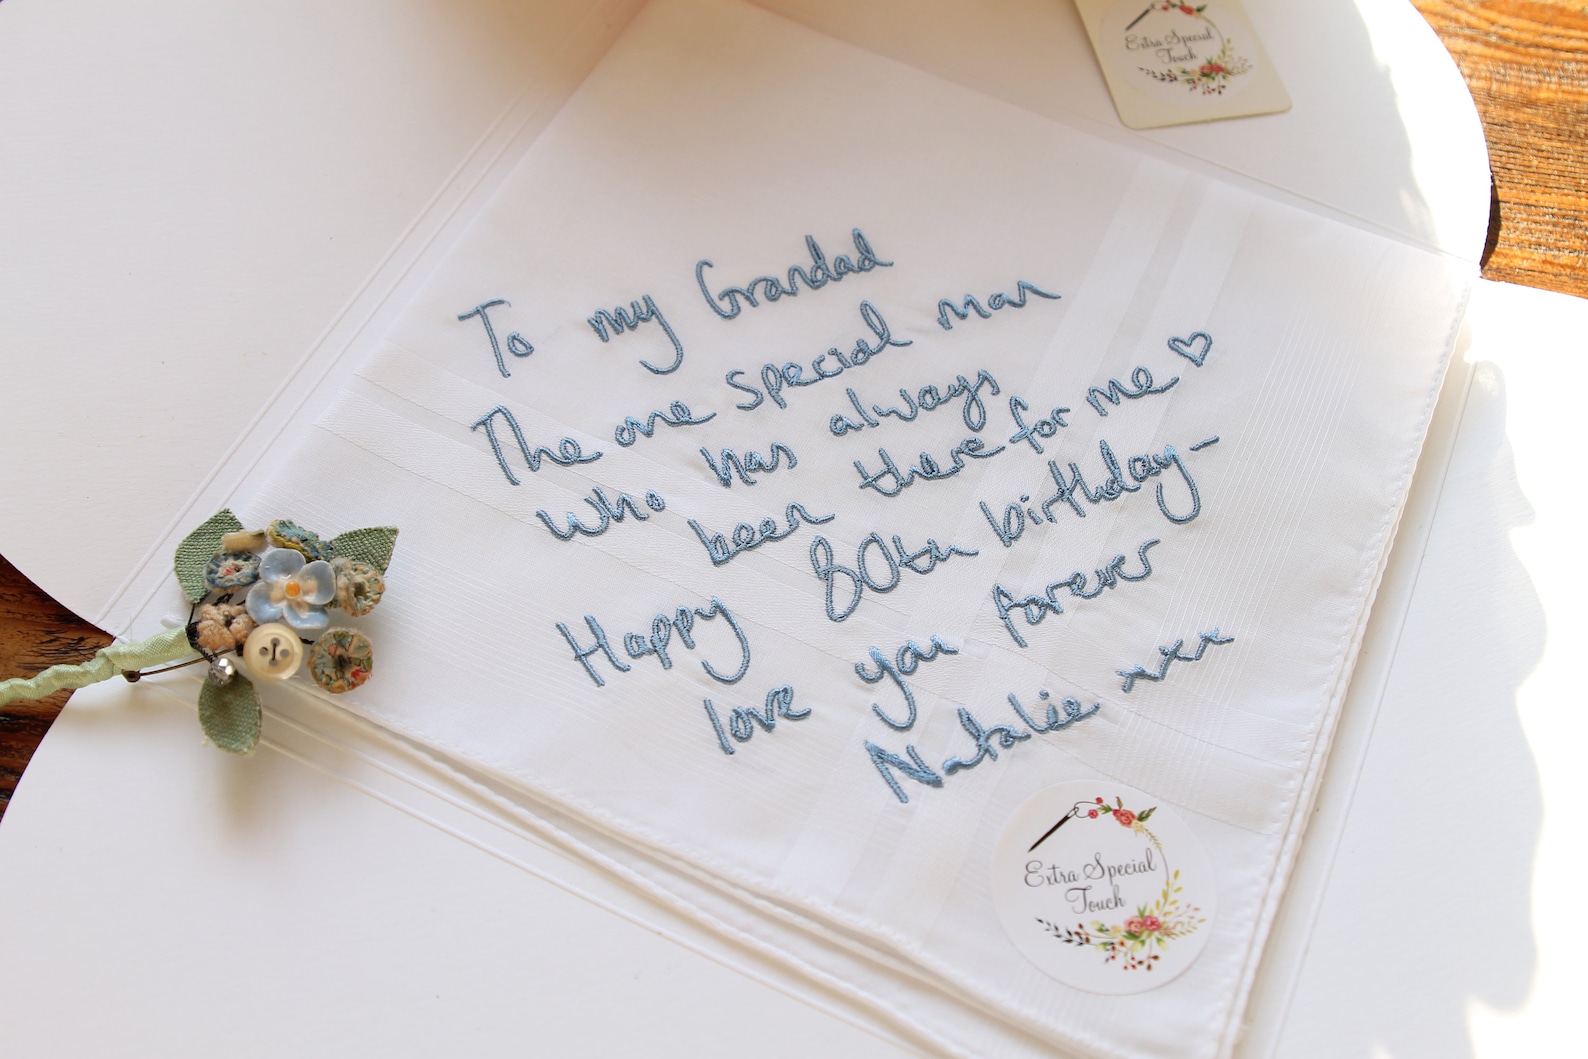 Extra Special
Touch
To my Grandad
The one special man
who has always
been there for me ♡
Happy 80th birthday-
love you forever
Natalie xxx
Extra Special
Touch